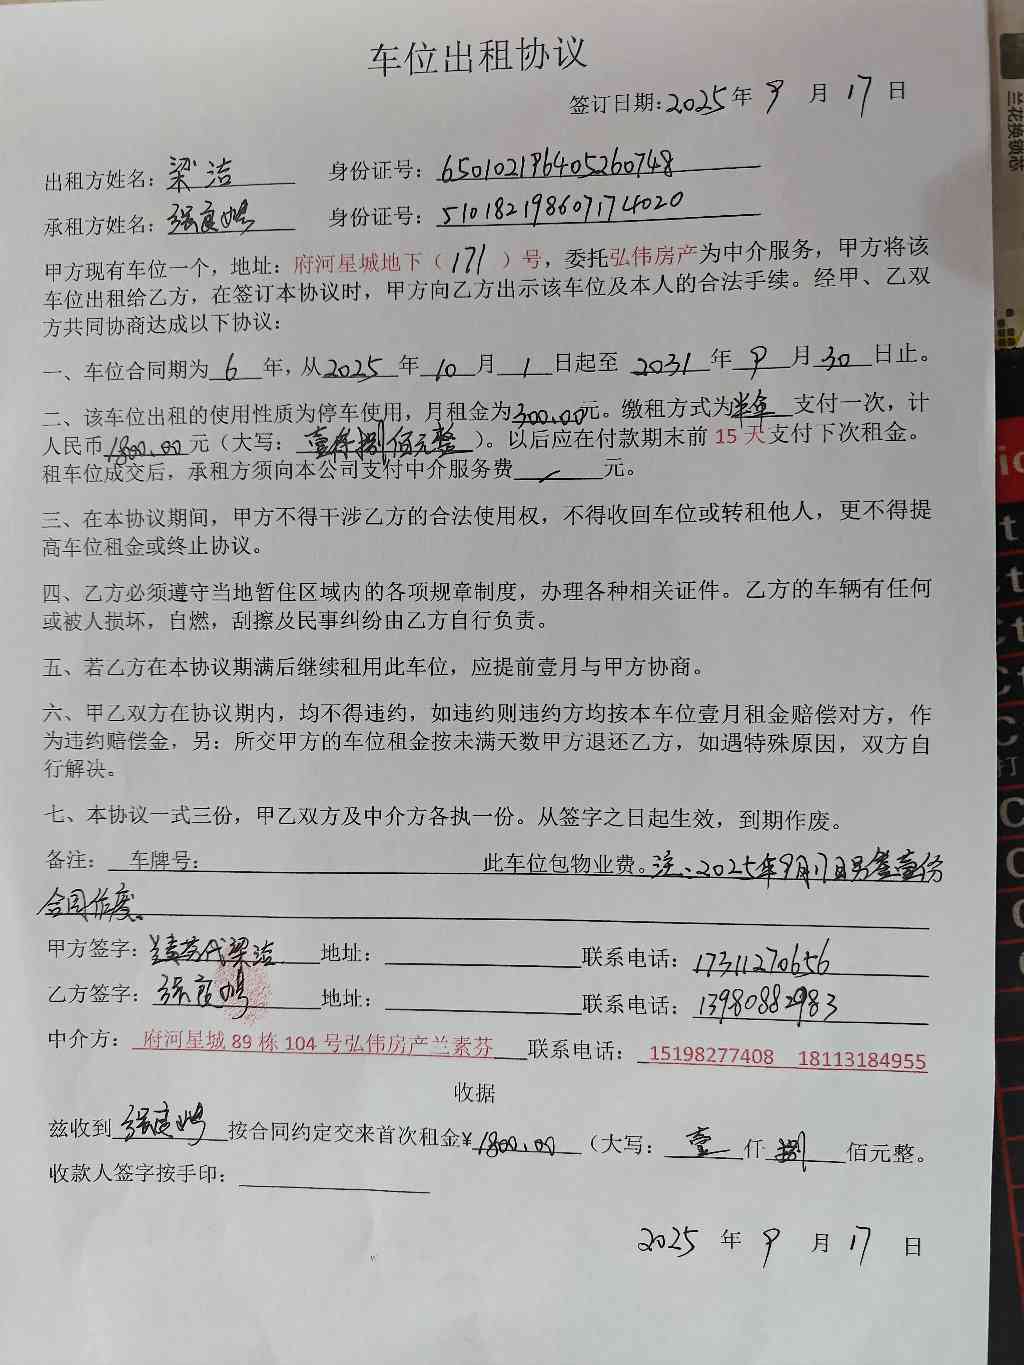 车位出租协议
签订日期:2025年 9 月 17 日
出租方姓名:梁洁 身份证号:650102196405260748
承租方姓名:张良鸿 身份证号:510182198607174020
甲方现有车位一个,地址:府河星城地下(171)号,委托弘伟房产为中介服务,甲方将该
车位出租给乙方,在签订本协议时,甲方向乙方出示该车位及本人的合法手续。经甲、乙双
方共同协商达成以下协议:
一、车位合同期为 6 年,从2025 年 10 月 1 日起至 2031 年 9 月 30 日止。
二、该车位出租的使用性质为停车使用,月租金为300.00元。缴租方式为半年 支付一次,计
人民币1800.00元(大写:壹仟捌佰元整)。以后应在付款期末前 15 天支付下次租金。
租车位成交后,承租方须向本公司支付中介服务费 / 元。
三、在本协议期间,甲方不得干涉乙方的合法使用权,不得收回车位或转租他人,更不得提
高车位租金或终止协议。
四、乙方必须遵守当地暂住区域内的各项规章制度,办理各种相关证件。乙方的车辆有任何
或被人损坏,自燃,刮擦及民事纠纷由乙方自行负责。
五、若乙方在本协议期满后继续租用此车位,应提前壹月与甲方协商。
六、甲乙双方在协议期内,均不得违约,如违约则违约方均按本车位壹月租金赔偿对方,作
为违约赔偿金,另:所交甲方的车位租金按未满天数甲方退还乙方,如遇特殊原因,双方自
行解决。
七、本协议一式三份,甲乙双方及中介方各执一份。从签字之日起生效,到期作废。
备注: 车牌号: 此车位包物业费。注:2025年9月17日另签壹份
合同作废。
甲方签字:代梁洁 地址: 联系电话:17311270656
乙方签字: 地址: 联系电话:13980882983
中介方:府河星城 89 栋 104 号弘伟房产兰素芬 联系电话:15198277408 18113184955
收据
兹收到 按合同约定交来首次租金¥1800.00(大写:壹 仟 捌 佰元整。
收款人签字按手印:
2025 年 9 月 17 日
兰花换锁芯